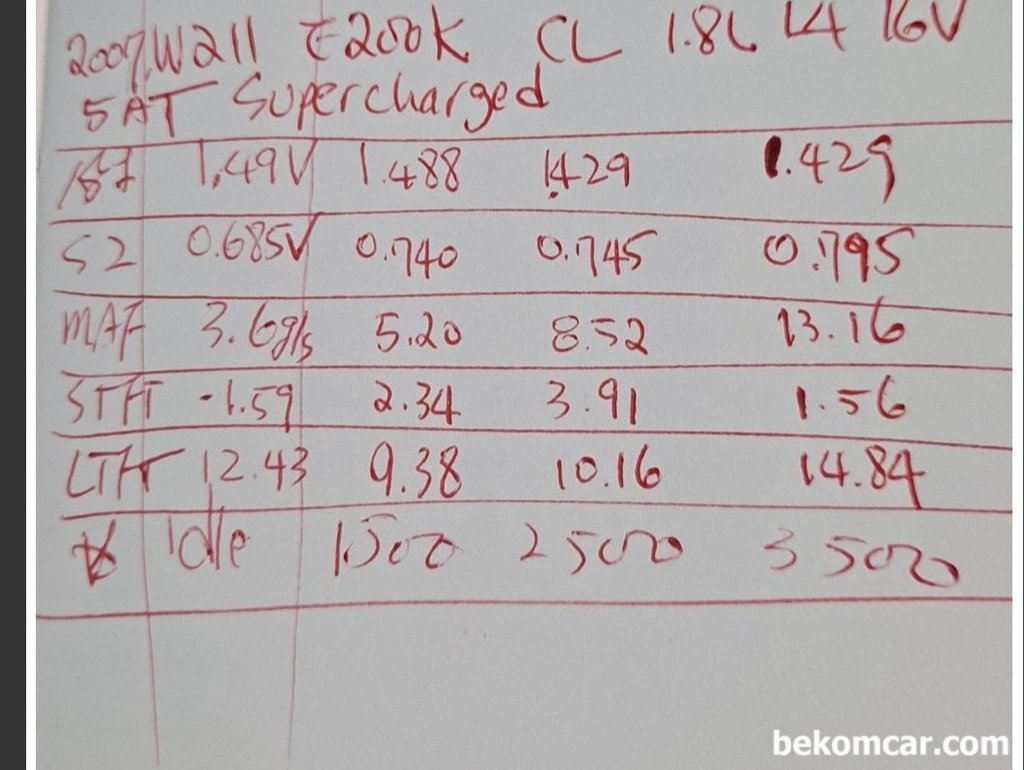 2007. W211 E200K CL 1.8L L4 16V
5AT Supercharged
1.49V 1.488 1.429 1.429
S2 0.685V 0.740 0.745 0.795
MAF 3.6g/s 5.20 8.52 13.16
STFT -1.59 2.34 3.91 1.56
LTFT 12.43 9.38 10.16 14.84
Idle 1500 2500 3500
bekomcar.com